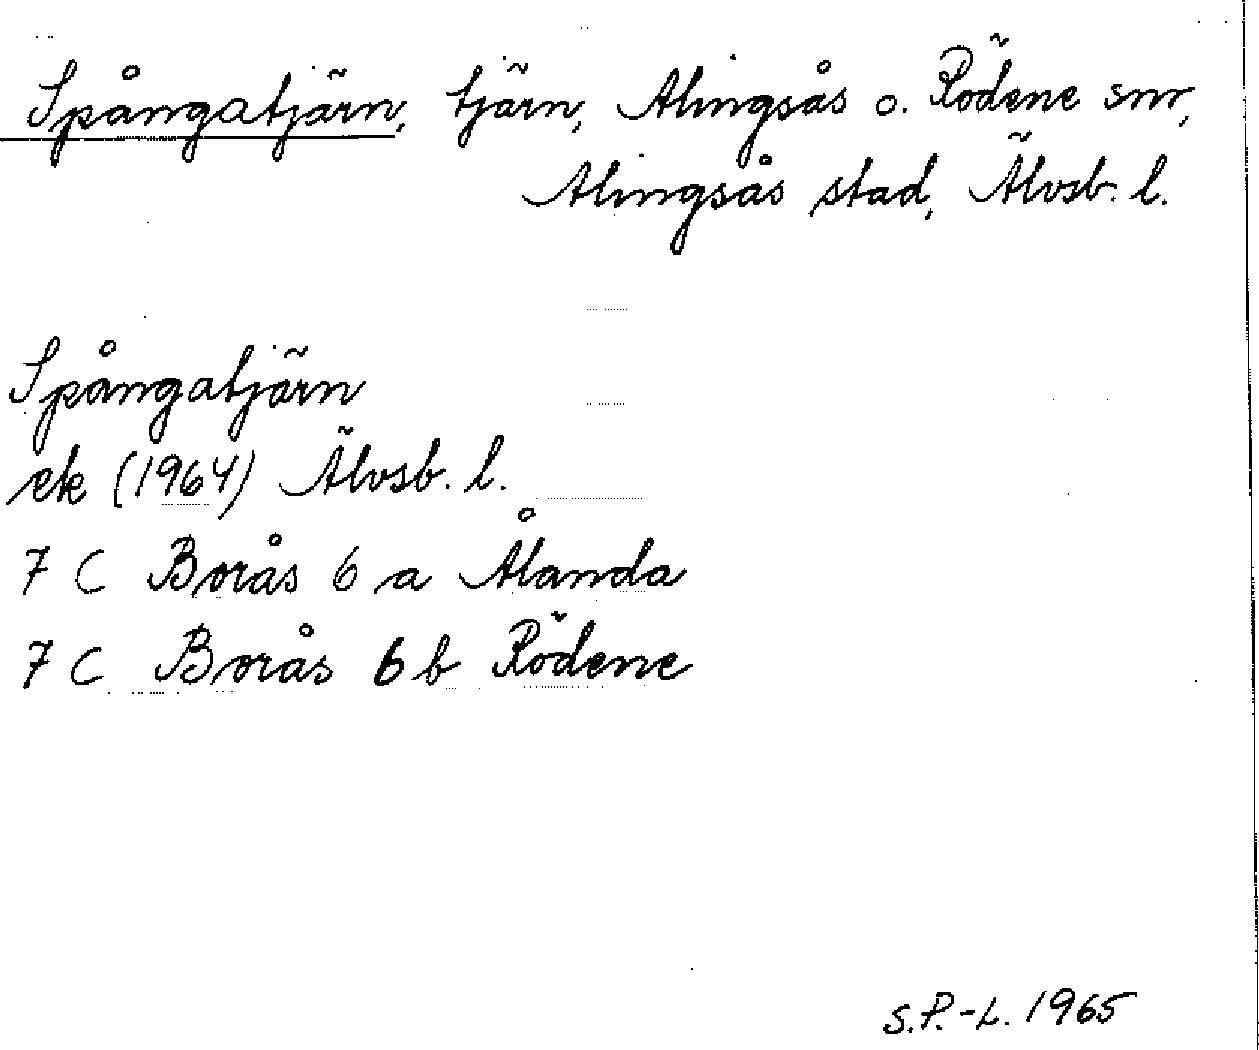 Spångatjärn, tjärn, Alingsås o. Rödene snr,
Alingsås stad, Älvsb. l.
Spångatjärn
ek (1964) Älvsb. l.
7 C Borås 6 a Ålanda
7 C Borås 6 b Rödene
S.P.-L. 1965